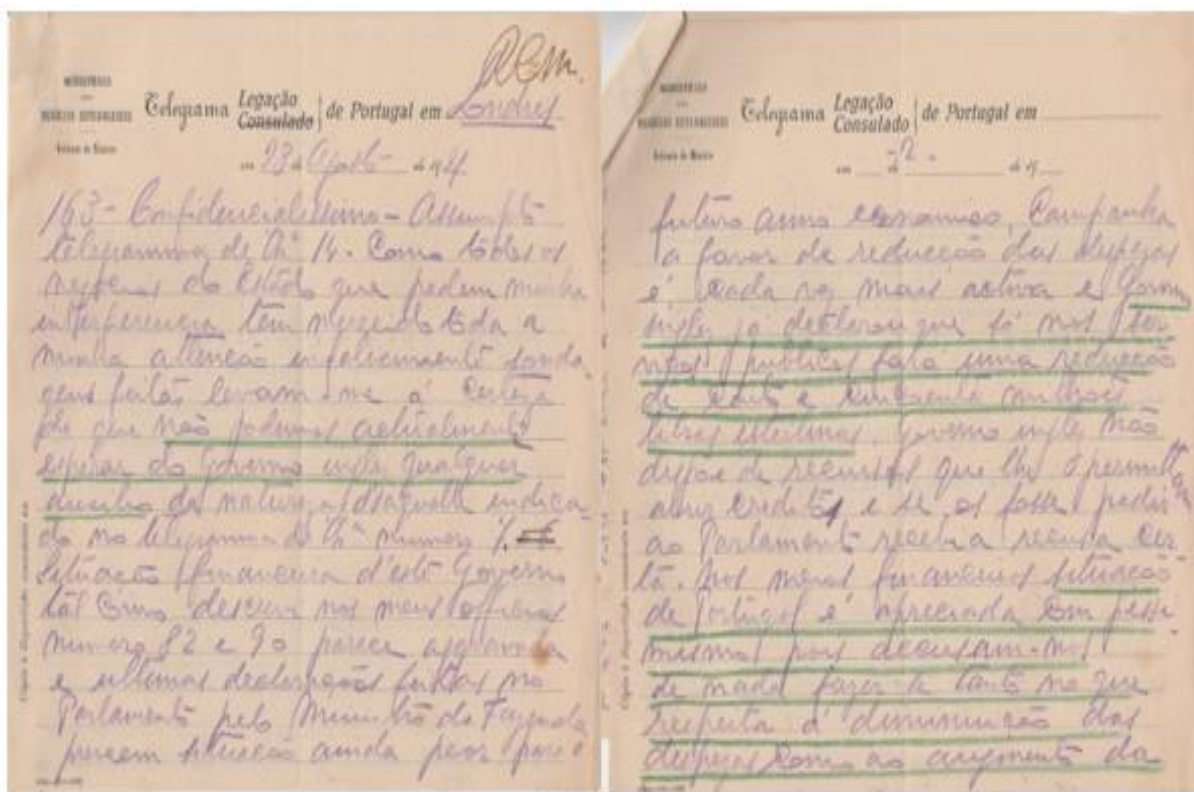 MINISTERIO
DOS
NEGOCIOS ESTRANGEIROS
Telegrama Legação
Consulado
de Portugal em Londres
em 23 de Agosto de 192
163 - Confidencialissimo - Assumpto
telegramma de V.ª Ex.ª 14. Como todos os
negocios do Estado que pedem minha
interferencia têm merecido toda a
minha attenção infelizmente sonda
gens feitas levam-me á certeza
de que não podemos actualmente
esperar do Governo inglez qualquer
da natureza d'aquelle indica
do no telegramma de V.ª numero
Situação financeira d'este Governo
tal como descrevi nos meus officios
numero 82 e 90 parece aggravada
e ultimas declarações feitas no
Parlamento pelo Ministro da Fazenda
parecem situação ainda peor para o
MINISTERIO
DOS
NEGOCIOS ESTRANGEIROS
Telegrama Legação
Consulado
de Portugal em
em -2- de de 19
futuro anno economico. Campanha
a favor de reducção das despezas
é cada vez mais activa e Governo
inglez já declarou que só nos ser
viços publicos fará uma reducção
de cento e cincoenta milhões
libras esterlinas. Governo inglez não
dispõe de recursos que lhe permittam
abrir creditos e se os fosse pedir
ao Parlamento receberia recusa cer
ta. Nos meios financeiros situação
de Portugal é apreciada com pessi
mismo pois accusam-nos
de nada fazer-se tanto no que
respeita á diminuição das
despezas como ao augmento da